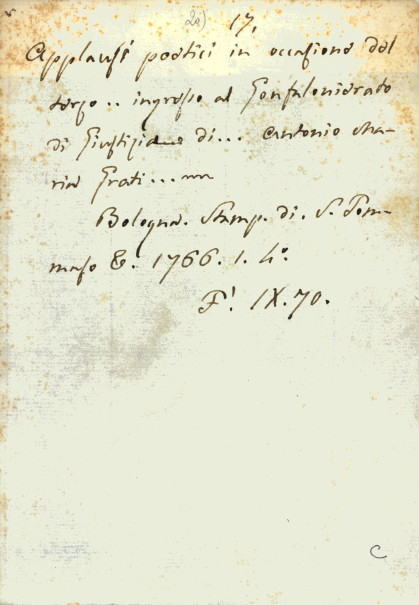 2i) 17.
Applausi poetici in occasione del
terzo .. ingresso al Gonfalonierato
di Giustizia di ... Antonio Ma-
ria Grati ...
Bologna. Stamp. di. S. Tom-
maso &. 1766. 1. 4°.
F! IX. 70.
C